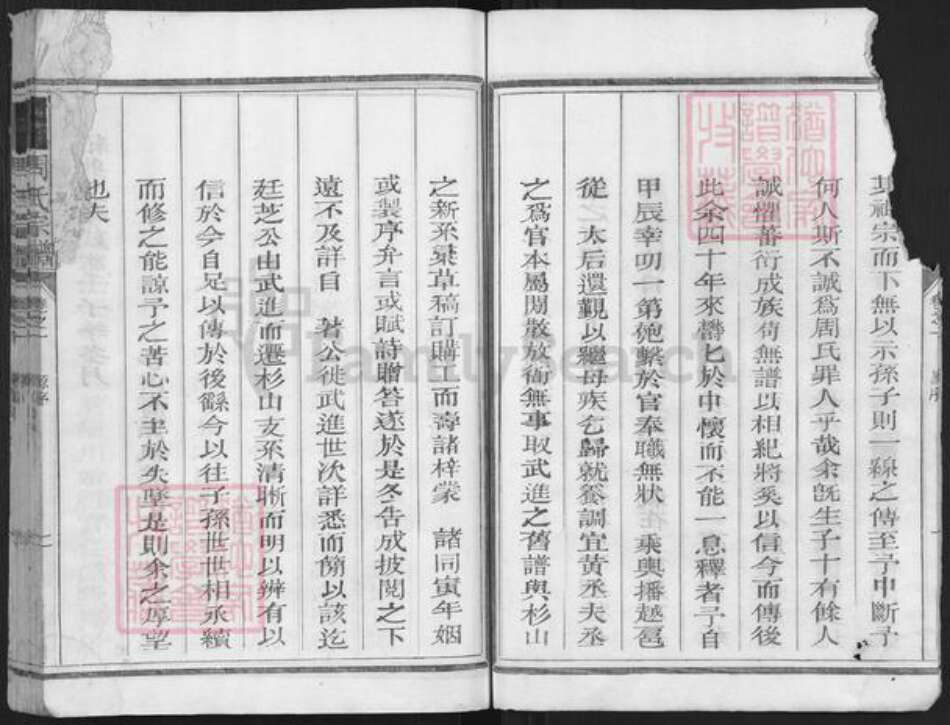 祖宗而下無以示孫子則一線之傳至予中斷予
何人斯不誠為周氏罪人乎哉余既生子十有餘人
誠懼蕃衍成族苟無譜以相紀將奚以信今而傳後
此余四十年來鬱匕於中懷而不能一息釋者予自
甲辰幸叨一第匏繫於官奉職無狀 乘輿播越扈
從 太后還覲以繼母疾乞歸就養調宜黃丞夫丞
之為官本屬閒散放衙無事取武進之舊譜與杉山
之新系彙草稿訂購工而壽諸梓棠 諸同寅年姻
或製序弁言或賦詩贈答遂於是冬告成披閱之下
遠不及詳自 著公徙武進世次詳悉而簡以該迄
廷芝公由武進而遷杉山支系清晰而明以辨有以
信於今自足以傳於後繇今以往子孫世世相承續
而修之能諒予之苦心不至於失墜是則余之厚望
也夫
周氏宗譜
FamilySearch